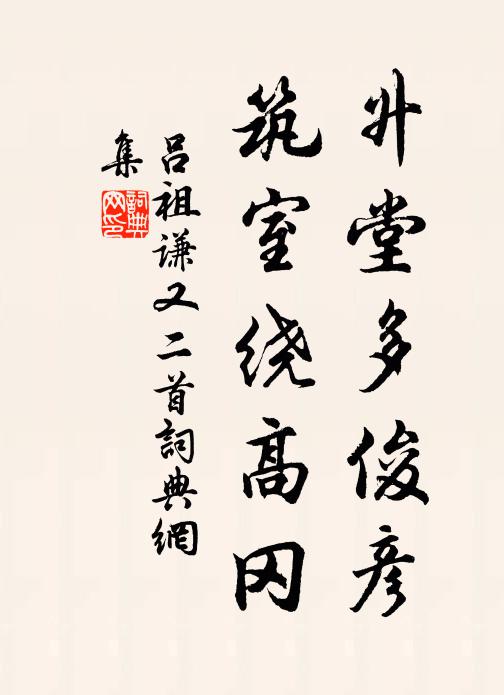 升堂多俊彦
筑室绕高冈
吕祖谦又二首詞典網
集
詞典網印